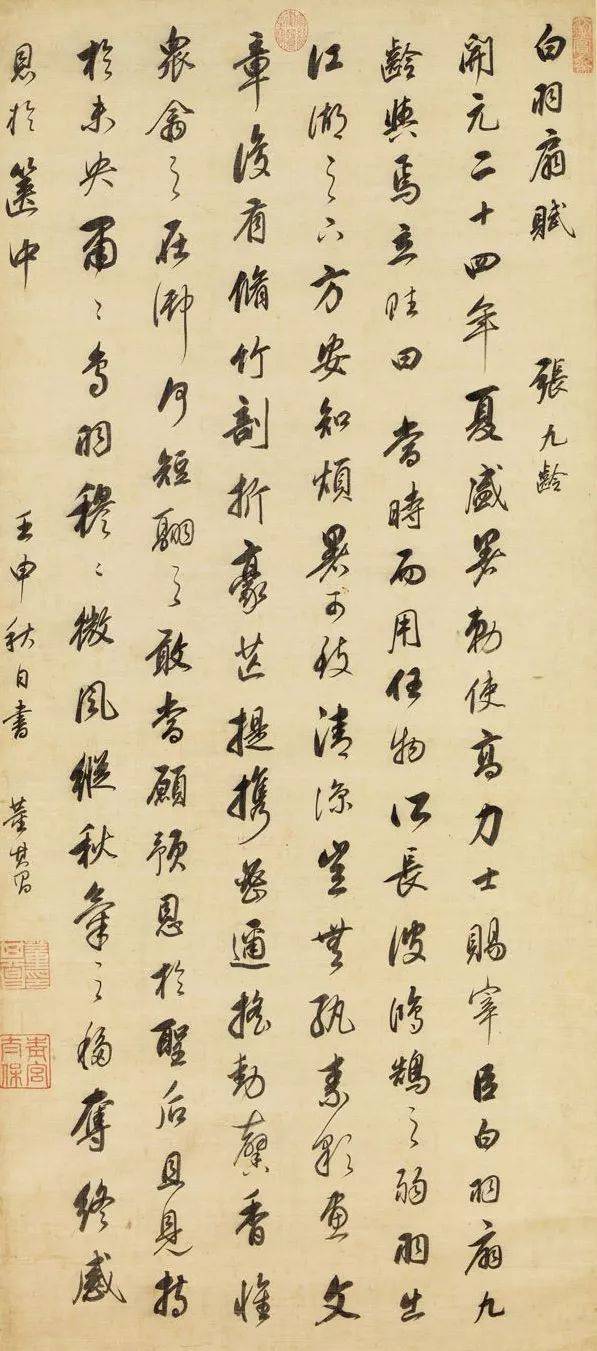 白羽扇賦 張九齡
開元二十四年夏盛暑勅使高力士賜宰臣白羽扇九
齡與焉立賦曰 當時而用任物所長彼鴻鵠之弱羽出
江湖之下方安知煩暑可致清涼豈無紈素彩畫文
章復有脩竹剖析豪芒提攜密邇搖動馨香惟
眾禽之在御何短翮之敢當願預恩於聖后且見持
於未央肅〻鳥羽穆〻微風縱秋氣之移奪終感
恩於篋中 壬申秋日書 董其昌
青宮太保